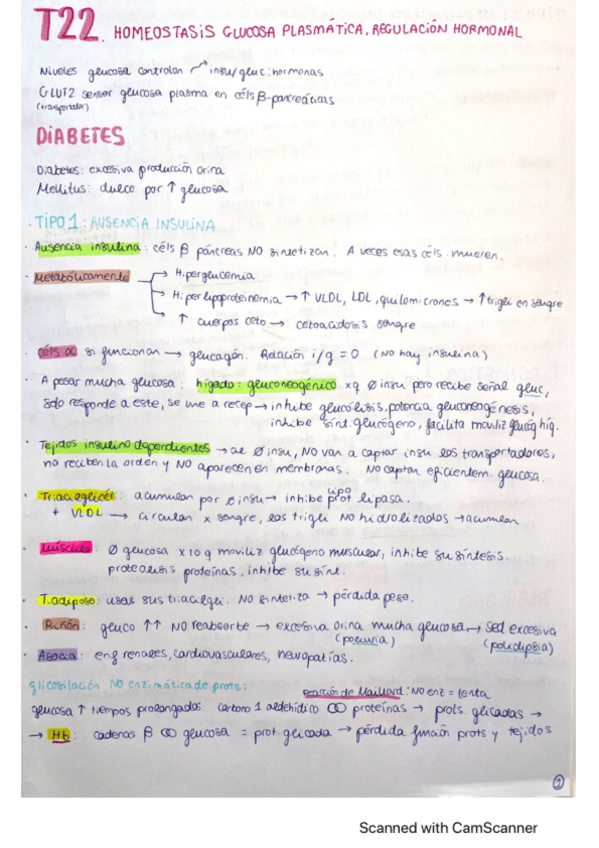 T22. HOMEOSTASIS GLUCOSA PLASMÁTICA. REGULACIÓN HORMONAL
Niveles glucosa controlan → insu/gluc: hormonas
GLUT2 sensor glucosa plasma en céls β-pancreáticas
(transportador)
DIABETES
Diabetes: excesiva producción orina
Mellitus: dulce por ↑ glucosa
· TIPO 1: AUSENCIA INSULINA
· Ausencia insulina: céls β páncreas NO sintetizan. A veces esas céls mueren.
· Metabólicamente → Hiperglucemia
→ Hiperlipoproteinemia → ↑ VLDL, LDL, quilomicrones → ↑ trigli en sangre
→ ↑ cuerpos ceto → cetoacidosis sangre
· céls α si funcionan → glucagón. Relación i/g = 0 (No hay insulina)
· A pesar mucha glucosa: hígado: gluconeogénico xq ∅ insu pero recibe señal gluc,
solo responde a este, se une a recep → inhibe glucólisis, potencia gluconeogénesis,
inhibe sínt. glucógeno, facilita moviliz glucóg híg.
· Tejidos insulino dependientes → al ∅ insu, NO van a captar insu los transportadores,
no reciben la orden y NO aparecen en membranas. No captan eficientem. glucosa.
· Triacilglicér: acumulan por ∅ insu → inhibe lipo prot lipasa.
+ VLDL → circulan x sangre, los trigli NO hidrolizados → acumulan
· Músculo: ∅ glucosa x lo q moviliz glucógeno muscular, inhibe su síntesis
proteolisis proteínas, inhibe su sínt.
· T. adiposo: usas sus triacilgli. NO sintetiza → pérdida peso.
· Riñón: gluco ↑↑ NO reabsorbe → excesiva orina mucha glucosa → Sed excesiva
(poliuria) (polidipsia)
· Asocia: enf renales, cardiovasculares, neuropatías.
glicosilación NO enzimática de prots: reacción de Maillard: NO enz = lenta
glucosa ↑ tiempos prolongados: carbono 1 aldehídico ∞ proteínas → prots. glicadas →
→ Hb: cadenas β ∞ glucosa = prot. glicada → pérdida función prots y tejidos
1
Scanned with CamScanner